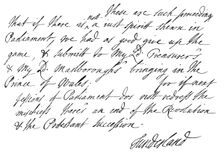 not these are such proceeding
that if there is a just spirit shown in
Parliament, we had as good give up the
game, & submitt to My Ld Treasurer,
& My Ld Marlborough's bringing in the
Prince of Wales. for if
session of Parliament does not redress the
mischief, there's an end of the Revolution
& the Protestant Succession.
Sunderland